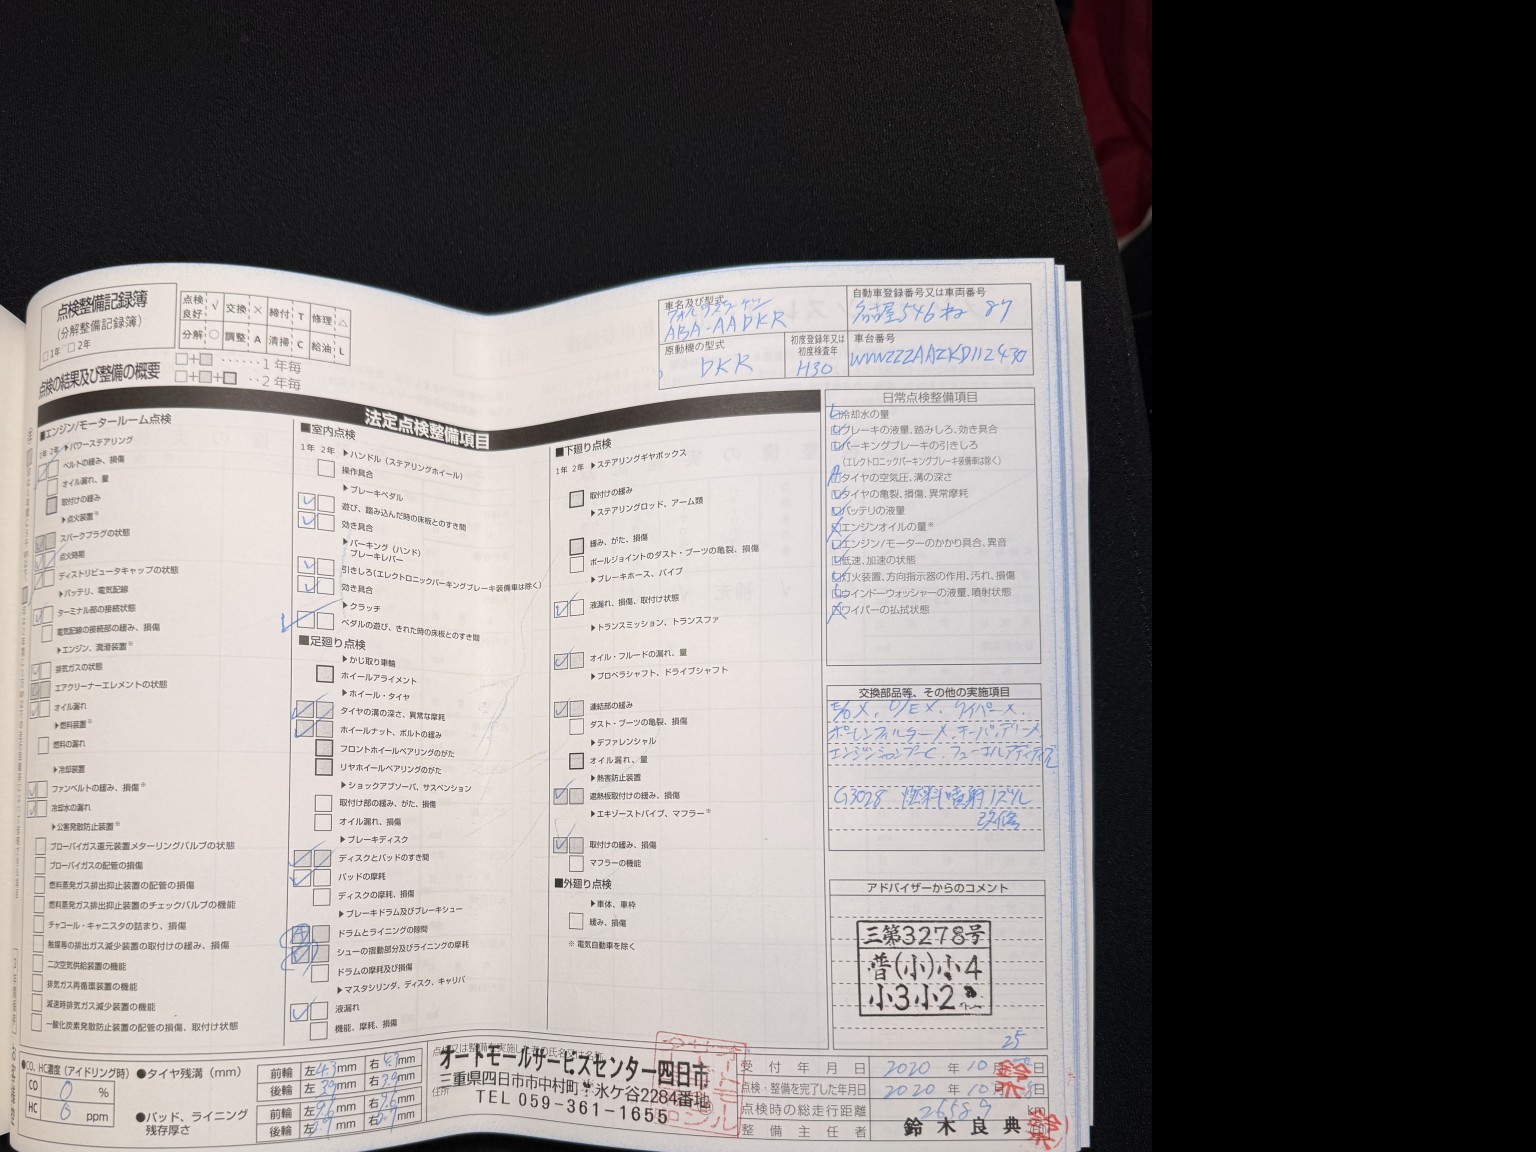 点検整備記録簿
(分解整備記録簿)
□1年 □2年
点検良好 √ 交換 × 締付 T 修理 △
分解 ○ 調整 A 清掃 C 給油 L
□+□ ······1年毎
□+□+□ ··2年毎
点検の結果及び整備の概要
車名及び型式
フォルクスワーゲン
ABA-AADKR
自動車登録番号又は車両番号
名古屋546 ね 87
原動機の型式
DKR
初度登録年又は初度検査年
H30
車台番号
WVWZZZAAZKD112430
法定点検整備項目
■エンジン/モータールーム点検
1年 2年 ▶パワーステアリング
ベルトの緩み、損傷
オイル漏れ、量
取付けの緩み
▶点火装置※
スパークプラグの状態
点火時期
ディストリビュータキャップの状態
▶バッテリ、電気配線
ターミナル部の接続状態
電気配線の接続部の緩み、損傷
▶エンジン、潤滑装置※
排気ガスの状態
エアクリーナーエレメントの状態
オイル漏れ
▶燃料装置※
燃料の漏れ
▶冷却装置
ファンベルトの緩み、損傷※
冷却水の漏れ
▶公害発散防止装置※
ブローバイガス還元装置メターリングバルブの状態
ブローバイガスの配管の損傷
燃料蒸発ガス排出抑止装置の配管の損傷
燃料蒸発ガス排出抑止装置のチェックバルブの機能
チャコール・キャニスタの詰まり、損傷
触媒等の排出ガス減少装置の取付けの緩み、損傷
二次空気供給装置の機能
排気ガス再循環装置の機能
減速時排気ガス減少装置の機能
一酸化炭素発散防止装置の配管の損傷、取付け状態
■室内点検
1年 2年 ▶ハンドル(ステアリングホイール)
操作具合
▶ブレーキペダル
遊び、踏み込んだ時の床板とのすき間
効き具合
▶パーキング(ハンド)
ブレーキレバー
引きしろ(エレクトロニックパーキングブレーキ装備車は除く)
効き具合
▶クラッチ
ペダルの遊び、きれた時の床板とのすき間
■足廻り点検
▶かじ取り車輪
ホイールアライメント
▶ホイール・タイヤ
タイヤの溝の深さ、異常な摩耗
ホイールナット、ボルトの緩み
フロントホイールベアリングのがた
リヤホイールベアリングのがた
▶ショックアブソーバ、サスペンション
取付け部の緩み、がた、損傷
オイル漏れ、損傷
▶ブレーキディスク
ディスクとパッドのすき間
パッドの摩耗
ディスクの摩耗、損傷
▶ブレーキドラム及びブレーキシュー
ドラムとライニングの隙間
シューの摺動部分及びライニングの摩耗
ドラムの摩耗及び損傷
▶マスタシリンダ、ディスク、キャリパ
液漏れ
機能、摩耗、損傷
■下廻り点検
1年 2年 ▶ステアリングギヤボックス
取付けの緩み
▶ステアリングロッド、アーム類
緩み、がた、損傷
ボールジョイントのダスト・ブーツの亀裂、損傷
▶ブレーキホース、パイプ
液漏れ、損傷、取付け状態
▶トランスミッション、トランスファ
オイル・フルードの漏れ、量
▶プロペラシャフト、ドライブシャフト
連結部の緩み
ダスト・ブーツの亀裂、損傷
▶デファレンシャル
オイル漏れ、量
▶熱害防止装置
遮熱板取付けの緩み、損傷
▶エキゾーストパイプ、マフラー※
取付けの緩み、損傷
マフラーの機能
■外廻り点検
▶車体、車枠
緩み、損傷
※ 電気自動車を除く
日常点検整備項目
冷却水の量
ブレーキの液量、踏みしろ、効き具合
パーキングブレーキの引きしろ
(エレクトロニックパーキングブレーキ装備車は除く)
タイヤの空気圧、溝の深さ
タイヤの亀裂、損傷、異常摩耗
バッテリの液量
エンジンオイルの量※
エンジン/モーターのかかり具合、異音
低速、加速の状態
灯火装置、方向指示器の作用、汚れ、損傷
ウインドーウォッシャーの液量、噴射状態
ワイパーの払拭状態
交換部品等、その他の実施項目
E/O X、O/E X、ワイパーX、
ポーレンフィルターX、キーバッテリーX
G3028 燃料噴射ノズル
改修
アドバイザーからのコメント
三第3278号
普(小)小4
小3小2
25
●CO、HC濃度(アイドリング時)
CO 0 %
HC 6 ppm
●タイヤ残溝(mm)
前輪 左4.3mm 右4.3mm
後輪 左3.9mm 右3.9mm
●パッド、ライニング残存厚さ
前輪 左9.6mm 右9.6mm
後輪 左 mm 右 mm
点検又は整備を実施した者の氏名又は名称
住所
オートモールサービスセンター四日市
三重県四日市市中村町字氷ケ谷2284番地
TEL 059-361-1655
受付年月日 2020 年 10 月 日
点検・整備を完了した年月日 2020 年 10 月 日
点検時の総走行距離 26589 km
整備主任者 鈴木良典
鈴木